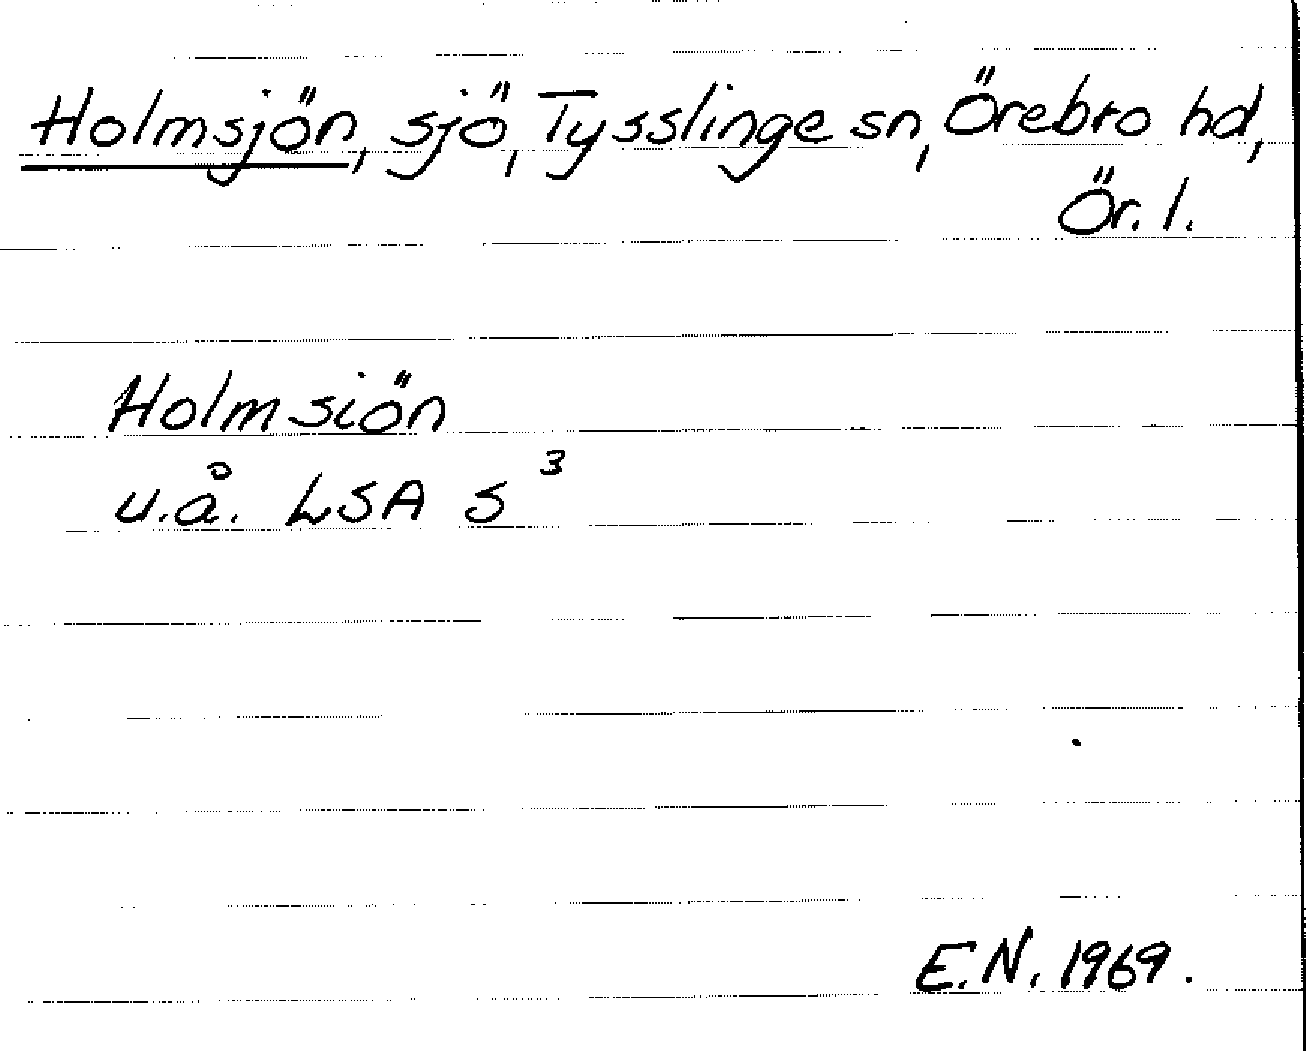 Holmsjön, sjö, Tysslinge sn, Örebro hd,
Ör. l.
Holmsiön
u.å. LSA S³
E.N. 1969.